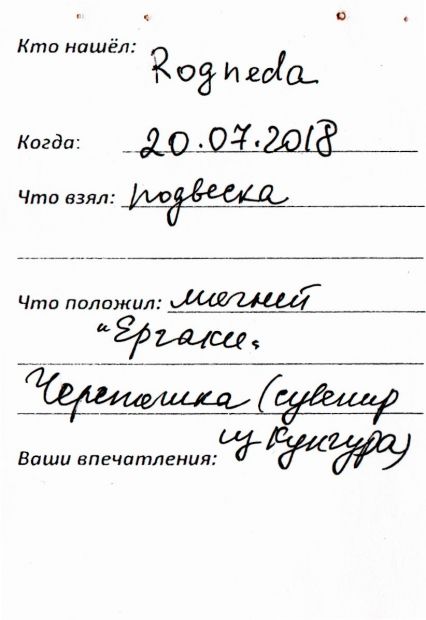 Кто нашёл: Rogneda
Когда: 20.07.2018
Что взял: подвеска
Что положил: магнит
"Ергаки"
Черепашка (сувенир
из Кунгура)
Ваши впечатления: